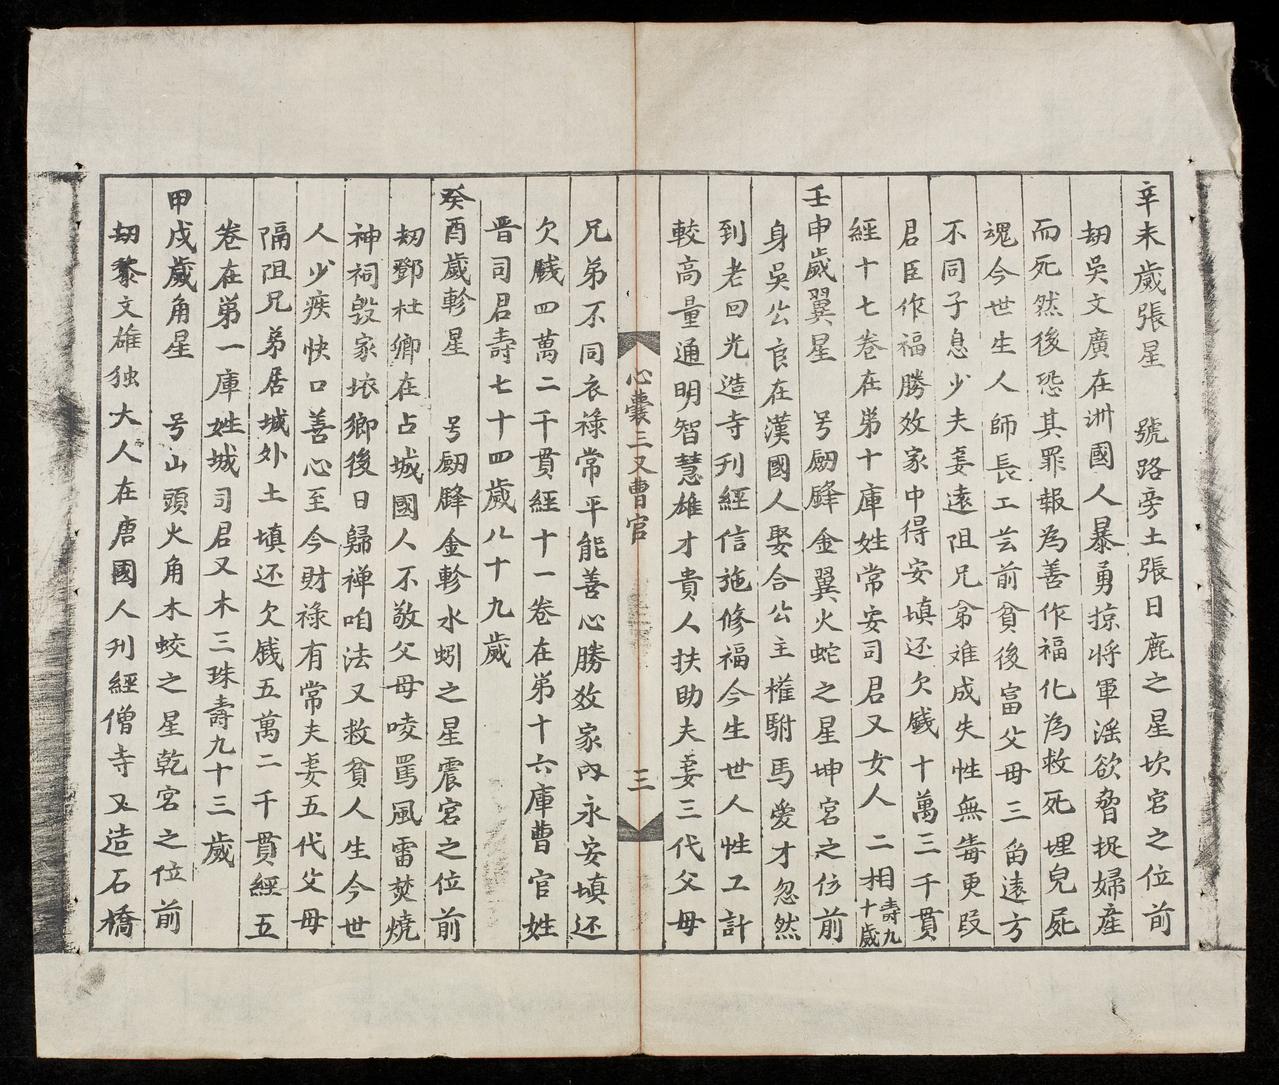 辛未歲張星 號路旁土張日鹿之星坎宮之位前
刼吳文廣在洲國人暴勇掠將軍淫欲脅捉婦產
而死然後恐其罪報為善作福化為救死埋兒屍
魂今世生人師長工芸前貧後富父母三甾遠方
不同子息少夫妾遠阻兄弟难成失性無毒更段
君臣作福勝效家中得安填还欠銭十萬三千貫
經十七卷在第十庫姓常安司君又女人二相壽九十歲
壬申歲翼星 号劒鋒金翼火蛇之星坤宮之位前
身吳公良在漢國人娶合公主權駙馬爱才忽然
到老回光造寺刊經信施修福今生世人性工計
較高量通明智慧雄才貴人扶助夫妾三代父母
心囊三又曹官 三
兄弟不同衣祿常平能善心勝效家內永安填还
欠銭四萬二千貫經十一卷在第十六庫曹官姓
晋司君壽七十四歲八十九歲
癸酉歲軫星 号劒鋒金軫水蚓之星震宮之位前
刼鄧杜卿在占城國人不敬父母唛罵風雷焚燒
神祠毀家㧡鄉後日歸禅咱法又救貧人生今世
人少疾快口善心至今財祿有常夫妾五代父母
隔阻兄弟居城外土填还欠銭五萬二千貫經五
卷在第一庫姓城司君又木三珠壽九十三歲
甲戌歲角星 号山頭火角木蛟之星乾宮之位前
刼黎文雄独大人在唐國人刋經僧寺又造石橋